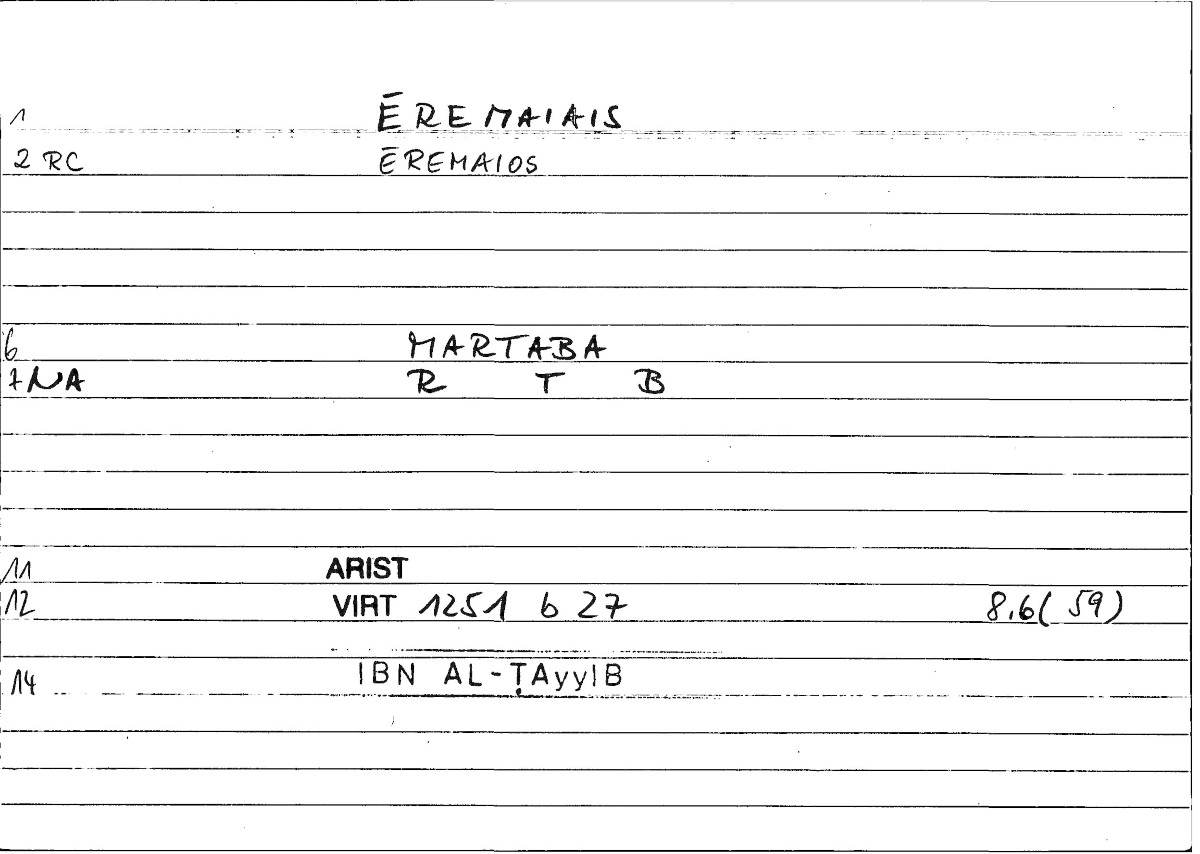 1 ĒREMAIAIS
2 RC ĒREMAIOS
6 MARTABA
7 NA R T B
11 ARIST
12 VIRT 1251 b 27 8.6( 59)
14 IBN AL-ṬAyyIB